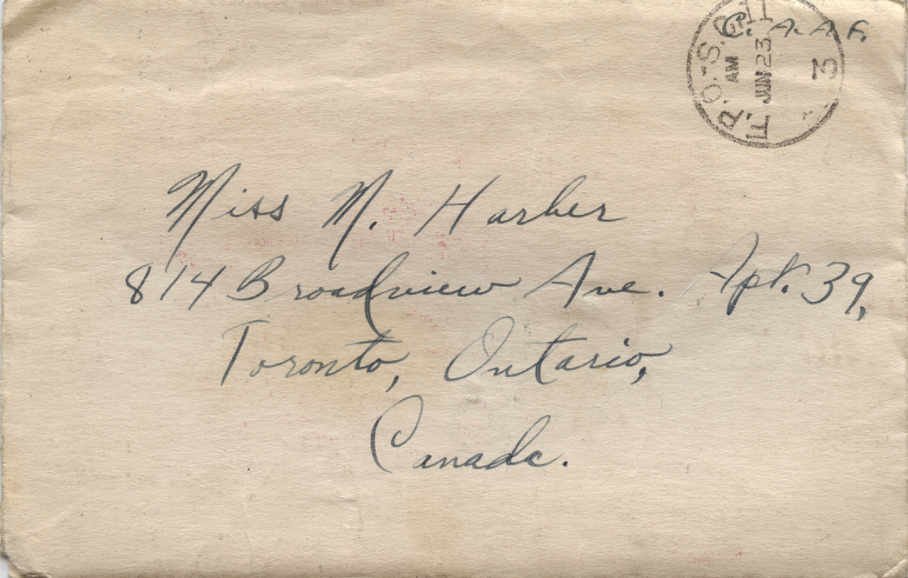 C. A. A. F.
F.P.O.-S.C. 11
AM
JUN 23
3
Miss M. Harber
814 Broadview Ave. Apt. 39,
Toronto, Ontario,
Canada.